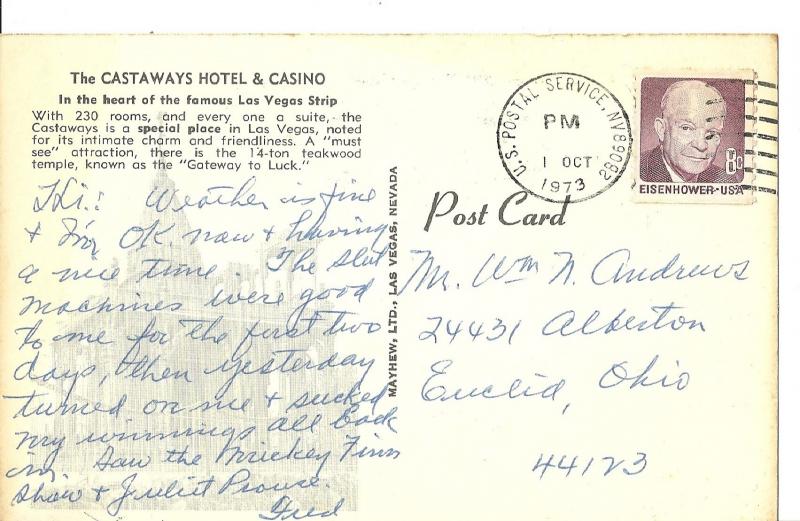 The CASTAWAYS HOTEL & CASINO
In the heart of the famous Las Vegas Strip
With 230 rooms, and every one a suite, the
Castaways is a special place in Las Vegas, noted
for its intimate charm and friendliness. A "must
see" attraction, there is the 14-ton teakwood
temple, known as the "Gateway to Luck."
Hi: Weather is fine
+ I'm OK. now + having
a nice time. The slot
machines were good
to me for the first two
days, then yesterday
turned on me + sucked
my winnings all back
in. Saw the Mickey Finn
show + Juliet Prowse.
Fred
MAYHEW, LTD., LAS VEGAS, NEVADA
U.S. POSTAL SERVICE, NV 890
PM
1 OCT
1973
8c
EISENHOWER·USA
Post Card
Mr. Wm N. Andrews
24431 Alberton
Euclid, Ohio
44123